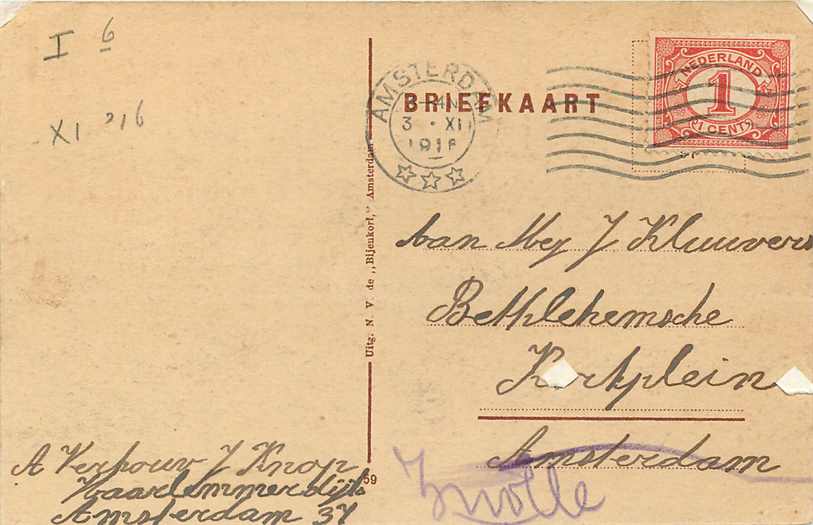 I 6
XI '16
AMSTERDAM
3 · XI
1916
BRIEFKAART
NEDERLAND
1
1 CENT
Uitg. N. V. de „Bijenkorf," Amsterdam
Aan Mej J Kluuvers
Bethlehemsche
Kerkplein
Amsterdam
Zwolle
A Verhouw J Knop
Haarlemmerdijk
Amsterdam 37
59